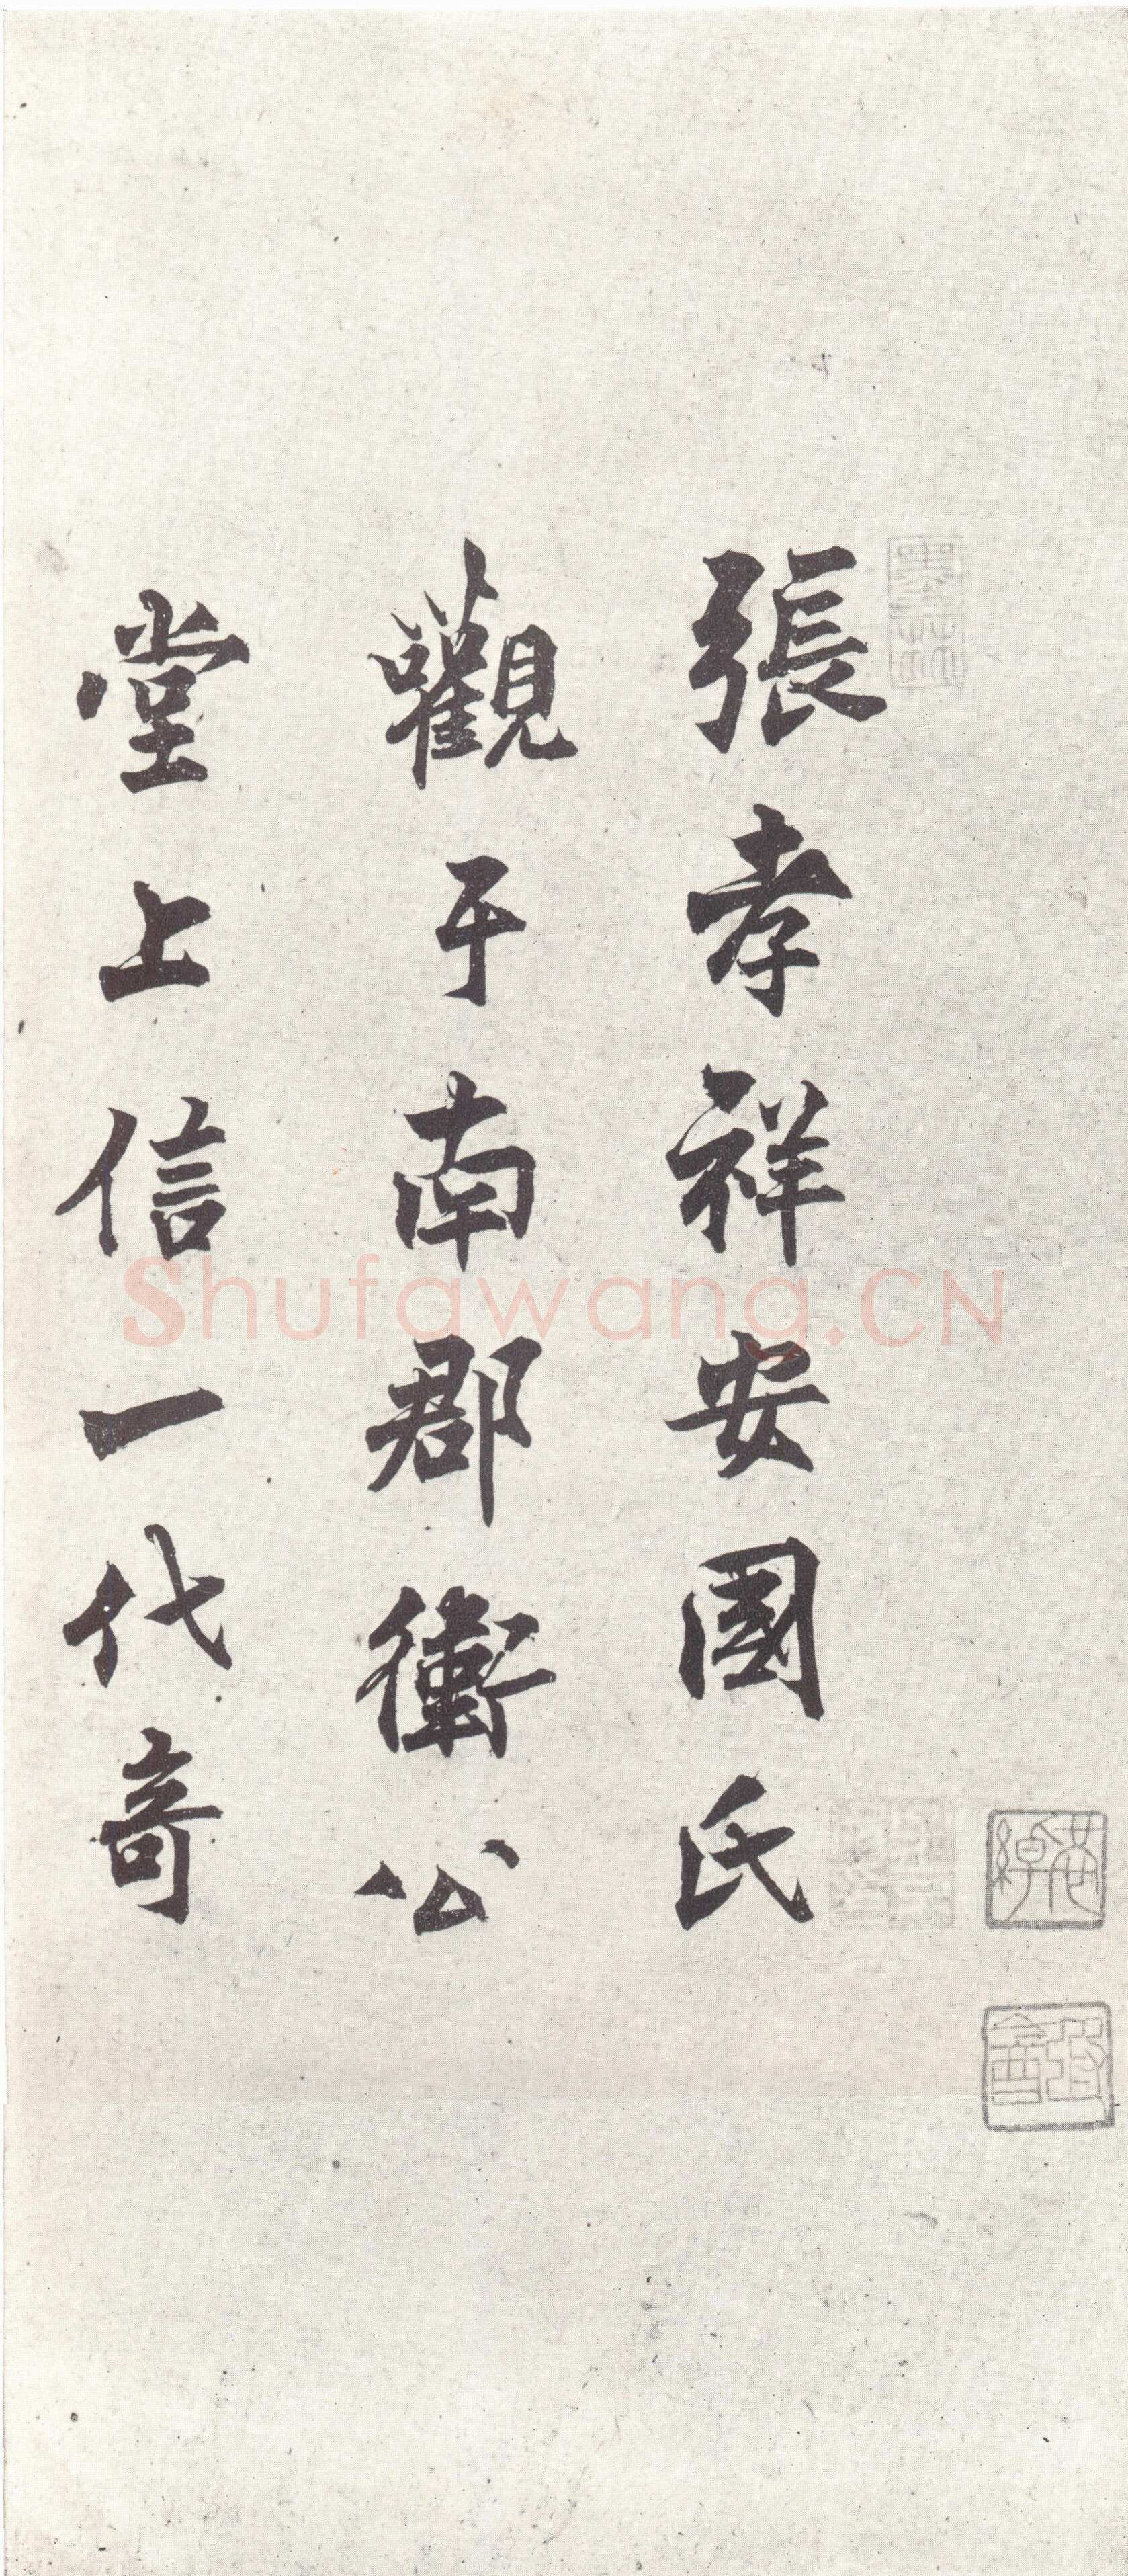 張孝祥安國氏
觀于南郡衛公
堂上信一代奇
墨林
Shufawang.CN